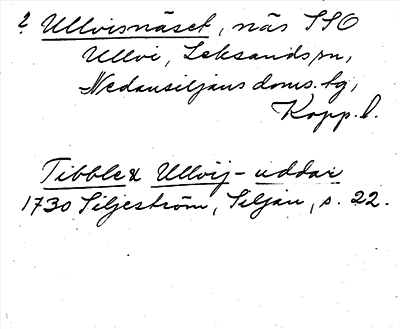 ? Ullvisnäset, näs SSO
Ullvi, Leksands sn,
Nedansiljans doms.tg,
Kopp. l.
Tibble & Ullvij-uddar
1730 Siljeström, Siljan, s. 22.